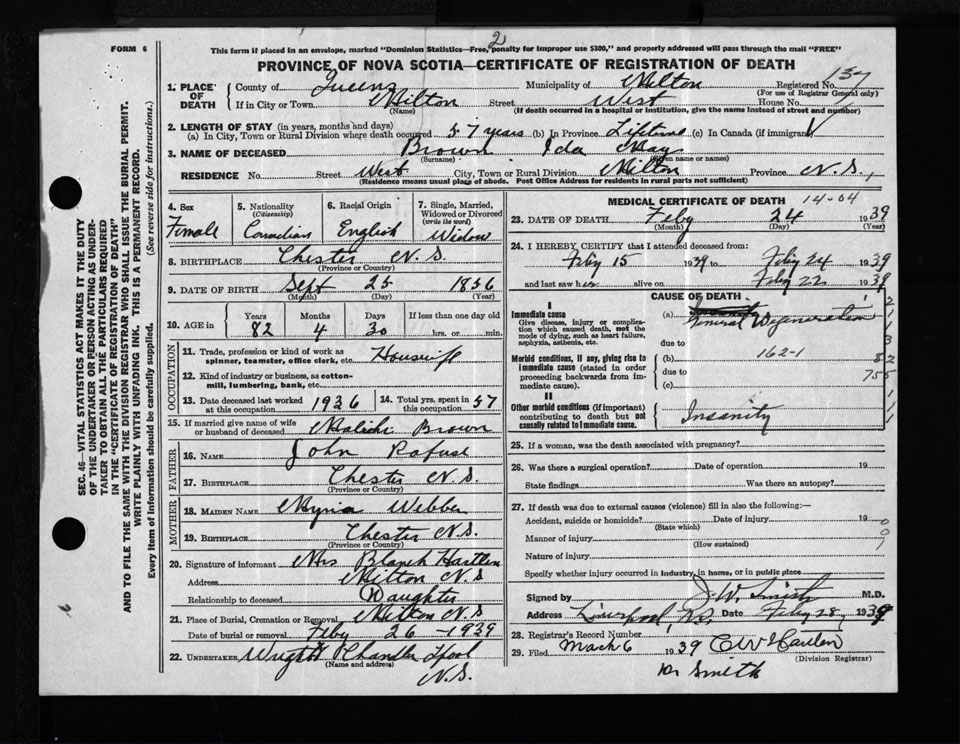 FORM 6
2
This form if placed in an envelope, marked "Dominion Statistics—Free, penalty for improper use $300," and properly addressed will pass through the mail "FREE"
PROVINCE OF NOVA SCOTIA—CERTIFICATE OF REGISTRATION OF DEATH
1. PLACE OF DEATH County of Queens Municipality of Milton Registered No. 137
(For use of Registrar General only)
If in City or Town Milton Street West House No.
(Name) (If death occurred in a hospital or institution, give the name instead of street and number)
2. LENGTH OF STAY (in years, months and days)
(a) In City, Town or Rural Division where death occurred 57 years (b) In Province Lifetime (c) In Canada (if immigrant)
3. NAME OF DECEASED Brown Ida May
(Surname) (Given name or names)
RESIDENCE No. Street West City, Town or Rural Division Milton Province N.S.,
(Residence means usual place of abode. Post Office Address for residents in rural parts not sufficient)
4. Sex Female
5. Nationality (Citizenship) Canadian
6. Racial Origin English
7. Single, Married, Widowed or Divorced (write the word) Widow
8. BIRTHPLACE Chester N.S.
(Province or Country)
9. DATE OF BIRTH Sept 25 1856
(Month) (Day) (Year)
10. AGE in Years Months Days If less than one day old
82 4 30 hrs. or min.
OCCUPATION
11. Trade, profession or kind of work as spinner, teamster, office clerk, etc. Housewife
12. Kind of industry or business, as cotton-mill, lumbering, bank, etc.
13. Date deceased last worked at this occupation 1936 14. Total yrs. spent in this occupation 57
15. If married give name of wife or husband of deceased Malichi Brown
FATHER
16. NAME John Rafuse
17. BIRTHPLACE Chester N.S.
(Province or Country)
MOTHER
18. MAIDEN NAME Webber
19. BIRTHPLACE Chester N.S.
(Province or Country)
20. Signature of informant Mrs Blanch Hartlen
Address Milton N.S
Relationship to deceased Daughter
21. Place of Burial, Cremation or Removal Milton N.S
Date of burial or removal Feby 26 - 1939
22. UNDERTAKER Wright Chandler Lpool
(Name and address)
N.S.
MEDICAL CERTIFICATE OF DEATH 14-04
23. DATE OF DEATH Feby 24 1939
(Month) (Day) (Year)
24. I HEREBY CERTIFY that I attended deceased from:
Feby 15 1939 to Feby 24 1939
and last saw her alive on Feby 22 1939
CAUSE OF DEATH
I
Immediate cause
Give disease, injury or complication which caused death, not the mode of dying, such as heart failure, asphyxia, asthenia, etc.
(a) General Degeneration
due to
Morbid conditions, if any, giving rise to immediate cause (stated in order proceeding backwards from immediate cause).
(b) 162-1
due to
(c)
II
Other morbid conditions (if important) contributing to death but not causally related to immediate cause.
Insanity
25. If a woman, was the death associated with pregnancy?
26. Was there a surgical operation? Date of operation 19
State findings Was there an autopsy?
27. If death was due to external causes (violence) fill in also the following:—
Accident, suicide or homicide? Date of injury 19
(State which)
Manner of injury
(How sustained)
Nature of injury
Specify whether injury occurred in industry, in home, or in public place
Signed by J.W. Smith M.D.
Address Liverpool, N.S. Date Feby 28, 1939
28. Registrar's Record Number
29. Filed March 6 1939
(Division Registrar)
Dr Smith
SEC. 46—VITAL STATISTICS ACT MAKES IT THE DUTY
OF THE UNDERTAKER OR PERSON ACTING AS UNDER-
TAKER TO OBTAIN ALL THE PARTICULARS REQUIRED
IN THE "CERTIFICATE OF REGISTRATION OF DEATH"
AND TO FILE THE SAME WITH THE DIVISION REGISTRAR WHO SHALL ISSUE THE BURIAL PERMIT.
WRITE PLAINLY WITH UNFADING INK. THIS IS A PERMANENT RECORD.
Every item of information should be carefully supplied. (See reverse side for instructions.)